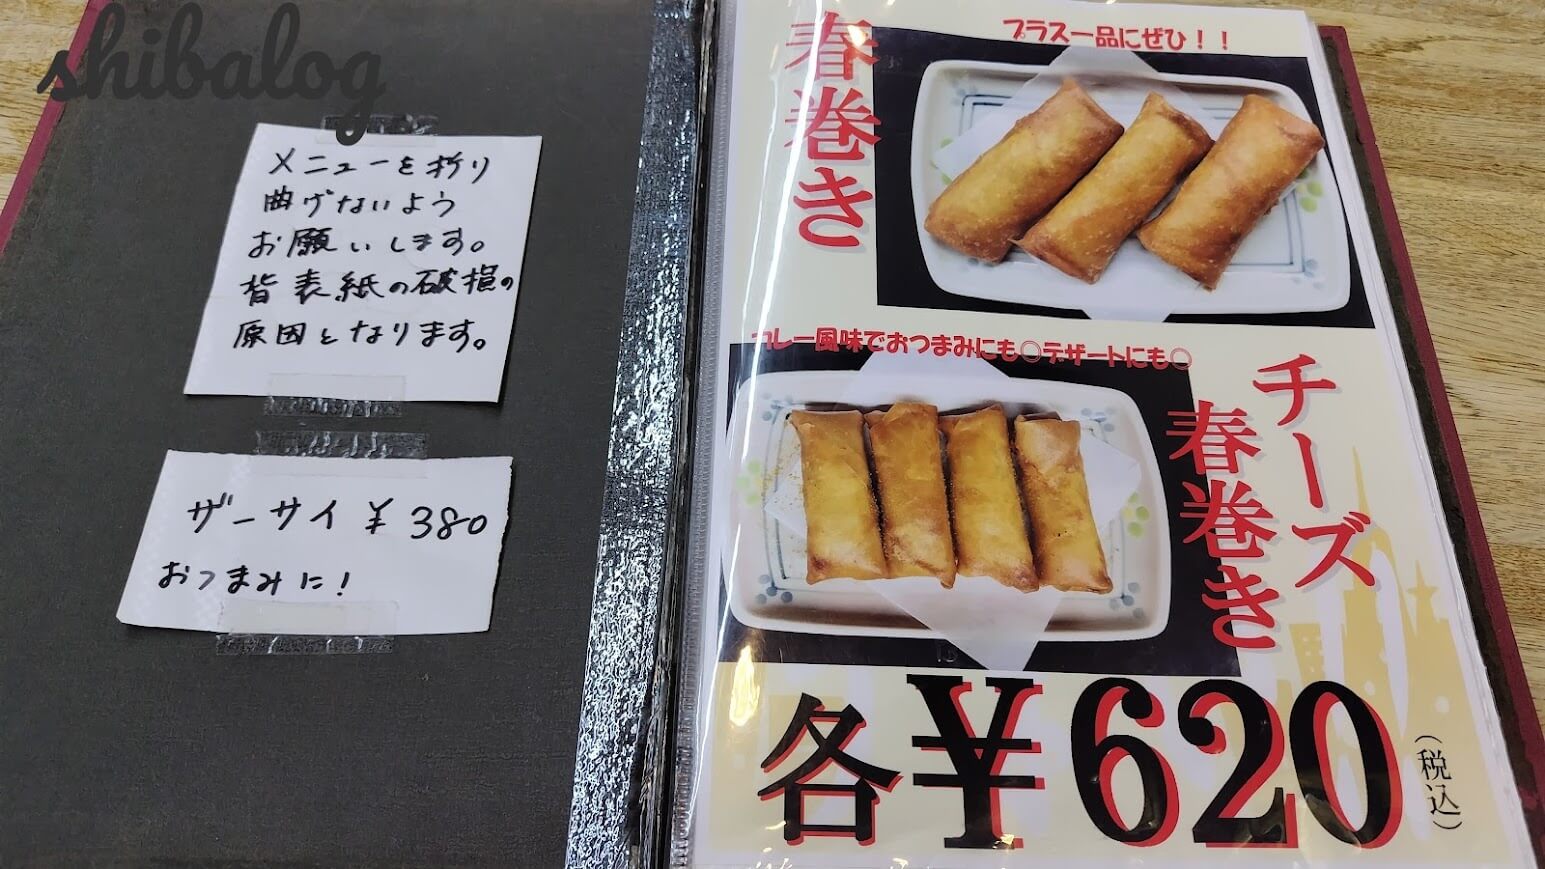 shibalog
メニューを折り
曲げないよう
お願いします。
背表紙の破損の
原因となります。
ザーサイ ¥380
おつまみに!
プラス一品にぜひ!!
春巻き
カレー風味でおつまみにも○デザートにも○
チーズ
春巻き
各¥620
(税込)